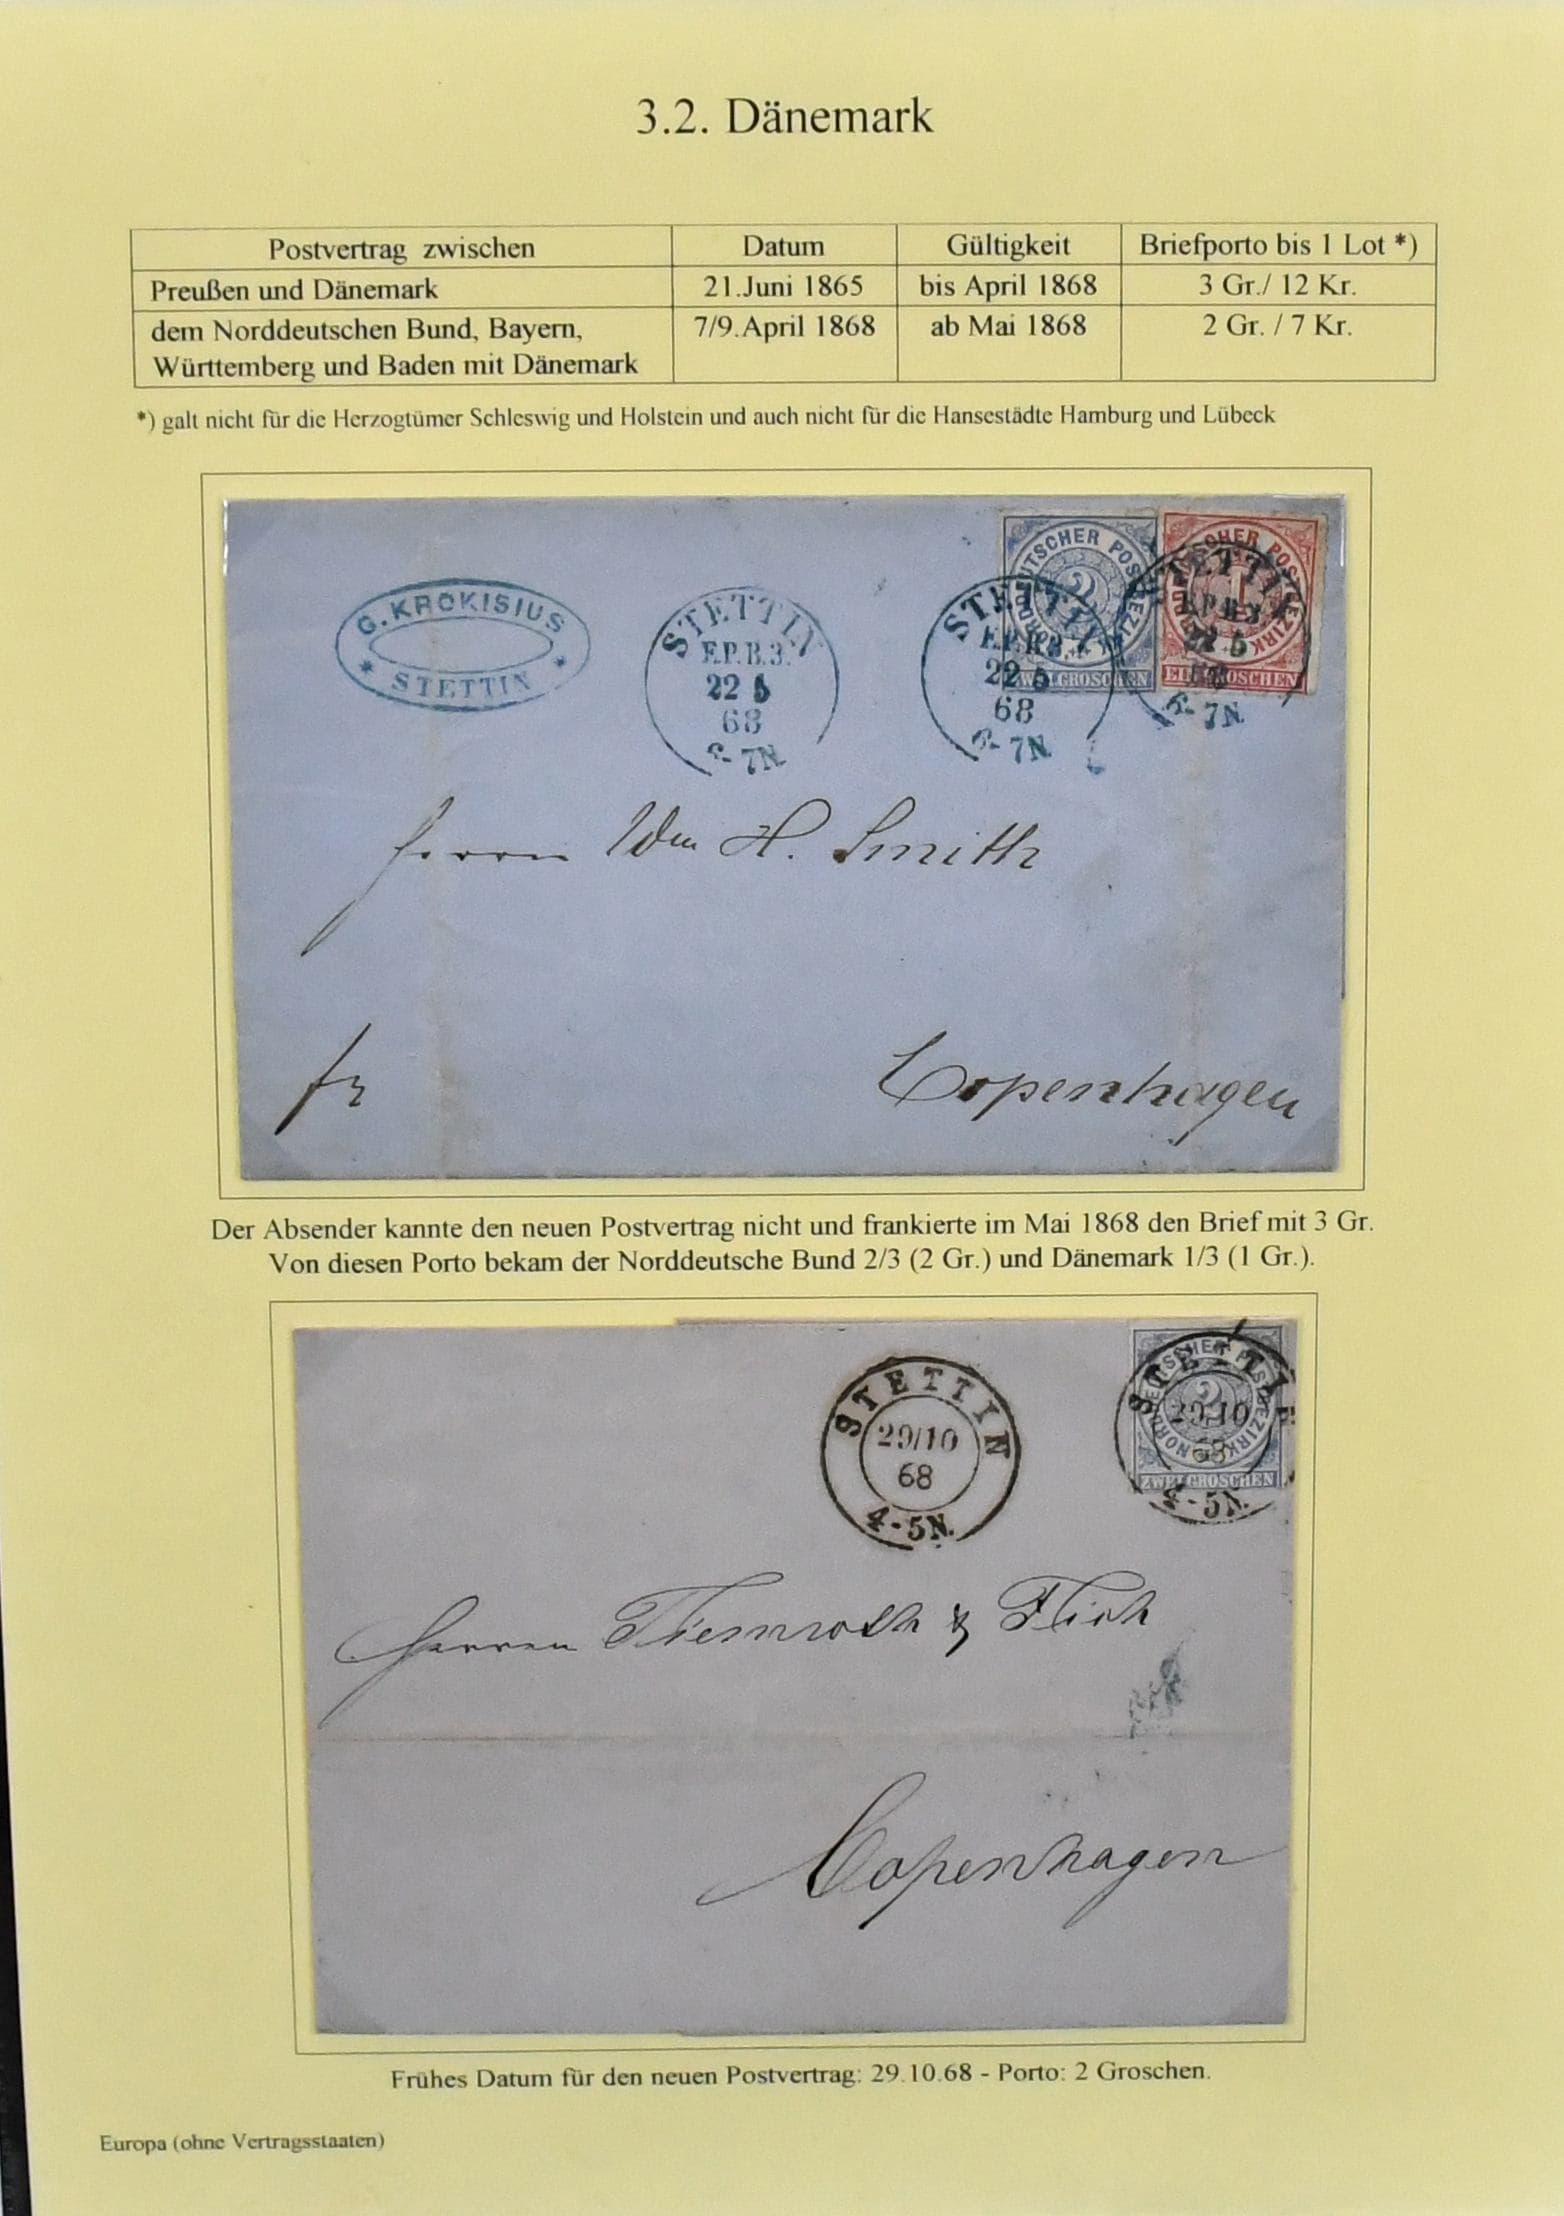 3.2. Dänemark
Postvertrag zwischen Datum Gültigkeit Briefporto bis 1 Lot *)
Preußen und Dänemark 21.Juni 1865 bis April 1868 3 Gr./ 12 Kr.
dem Norddeutschen Bund, Bayern, 7/9.April 1868 ab Mai 1868 2 Gr. / 7 Kr.
Württemberg und Baden mit Dänemark
*) galt nicht für die Herzogtümer Schleswig und Holstein und auch nicht für die Hansestädte Hamburg und Lübeck
G. KROKISIUS
* STETTIN *
STETTIN
E.P.B.3.
22 5
68
6-7N.
STETTIN
E.P.B.3.
22 5
68
6-7N.
NORDDEUTSCHER POSTBEZIRK
2
ZWEI GROSCHEN
STETTIN
E.P.B.3.
22 5
68
6-7N.
NORDDEUTSCHER POSTBEZIRK
1
EIN GROSCHEN
Herrn Wm H. Smith
fr
Copenhagen
Der Absender kannte den neuen Postvertrag nicht und frankierte im Mai 1868 den Brief mit 3 Gr.
Von diesen Porto bekam der Norddeutsche Bund 2/3 (2 Gr.) und Dänemark 1/3 (1 Gr.).
STETTIN
29/10
68
4-5N.
NORDDEUTSCHER POSTBEZIRK
2
ZWEI GROSCHEN
STETTIN
29/10
68
4-5N.
Herren Tiemroth &
Copenhagen
Frühes Datum für den neuen Postvertrag: 29.10.68 - Porto: 2 Groschen.
Europa (ohne Vertragsstaaten)